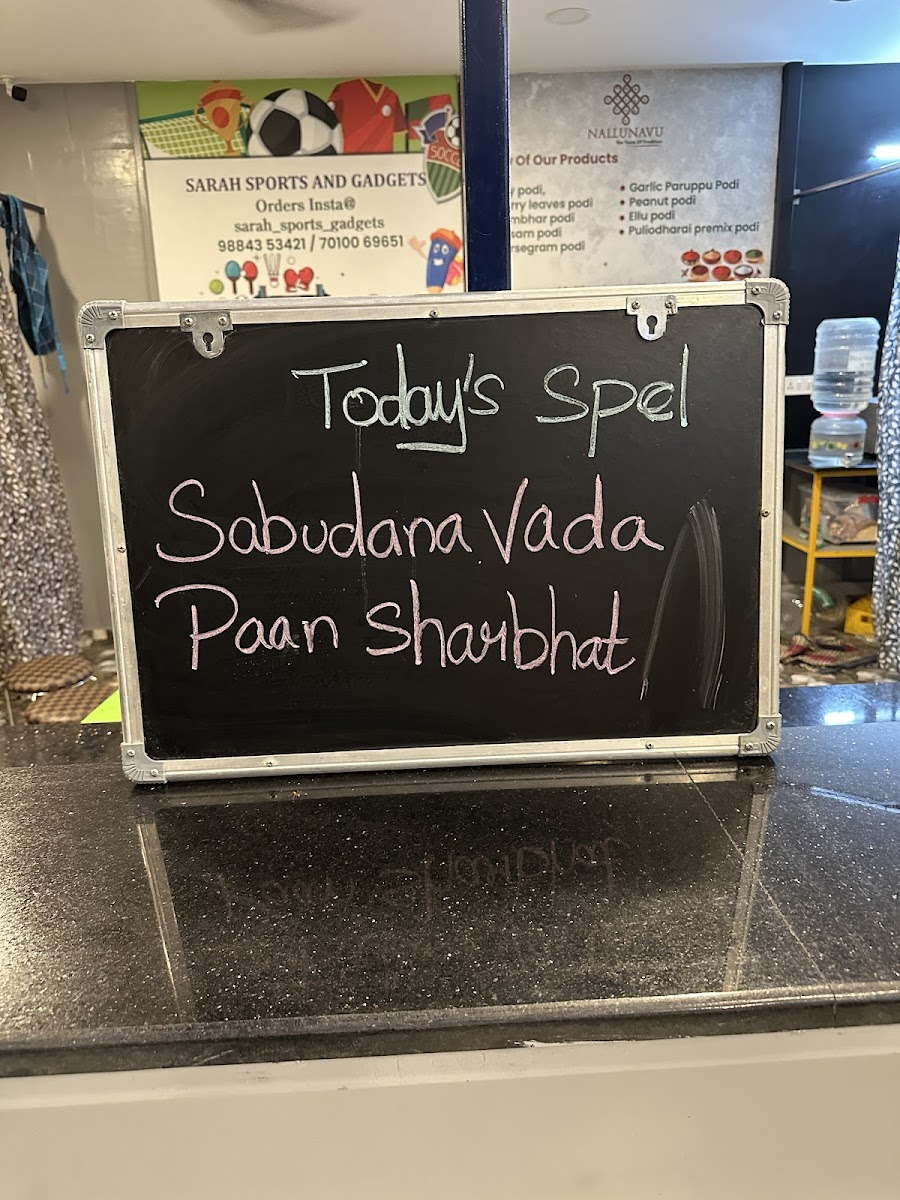 SARAH SPORTS AND GADGETS
Orders Insta@
sarah_sports_gadgets
98843 53421 / 70100 69651
SOCC
NALLUNAVU
The Taste Of Tradition
Of Our Products
podi,
leaves podi
podi
podi
podi
• Garlic Paruppu Podi
• Peanut podi
• Ellu podi
• Puliodharai premix podi
Today's Spel
Sabudana Vada
Paan Sharbhat